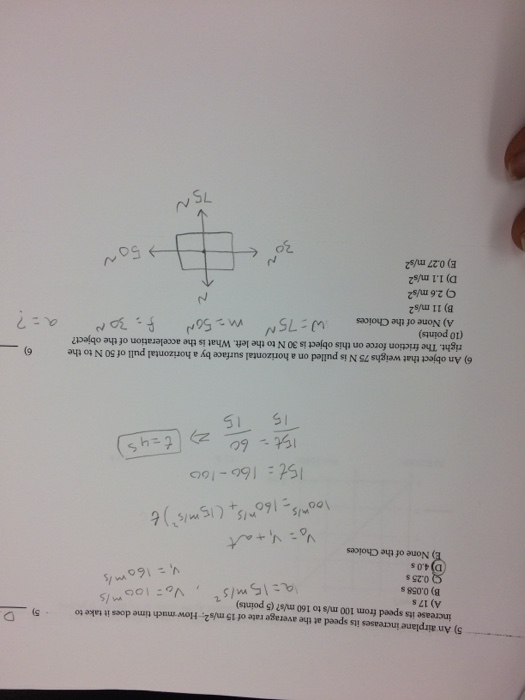 5) An airplane increases its speed at the average rate of 15 m/s². How much time does it take to 5) D
increase its speed from 100 m/s to 160 m/s? (5 points)
A) 17 s a = 15 m/s² , V₀ = 100 m/s
B) 0.058 s V₁ = 160 m/s
C) 0.25 s
D) 4.0 s
E) None of the Choices
V₀ = V₁ + at
100 m/s = 160 m/s + (15 m/s²) t
15t = 160 - 100
15t/15 = 60/15 ⇒ t = 4s
6) An object that weighs 75 N is pulled on a horizontal surface by a horizontal pull of 50 N to the 6)
right. The friction force on this object is 30 N to the left. What is the acceleration of the object?
(10 points)
A) None of the Choices W = 75N m = 50N f = 30N a = ?
B) 11 m/s²
C) 2.6 m/s²
D) 1.1 m/s²
E) 0.27 m/s²
N
30 N 50 N
75 N